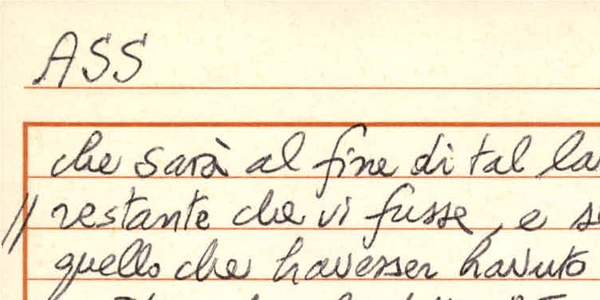 ASS
che sarà al fine di tal la
// restante che vi fusse, e se
quello che havesser havuto